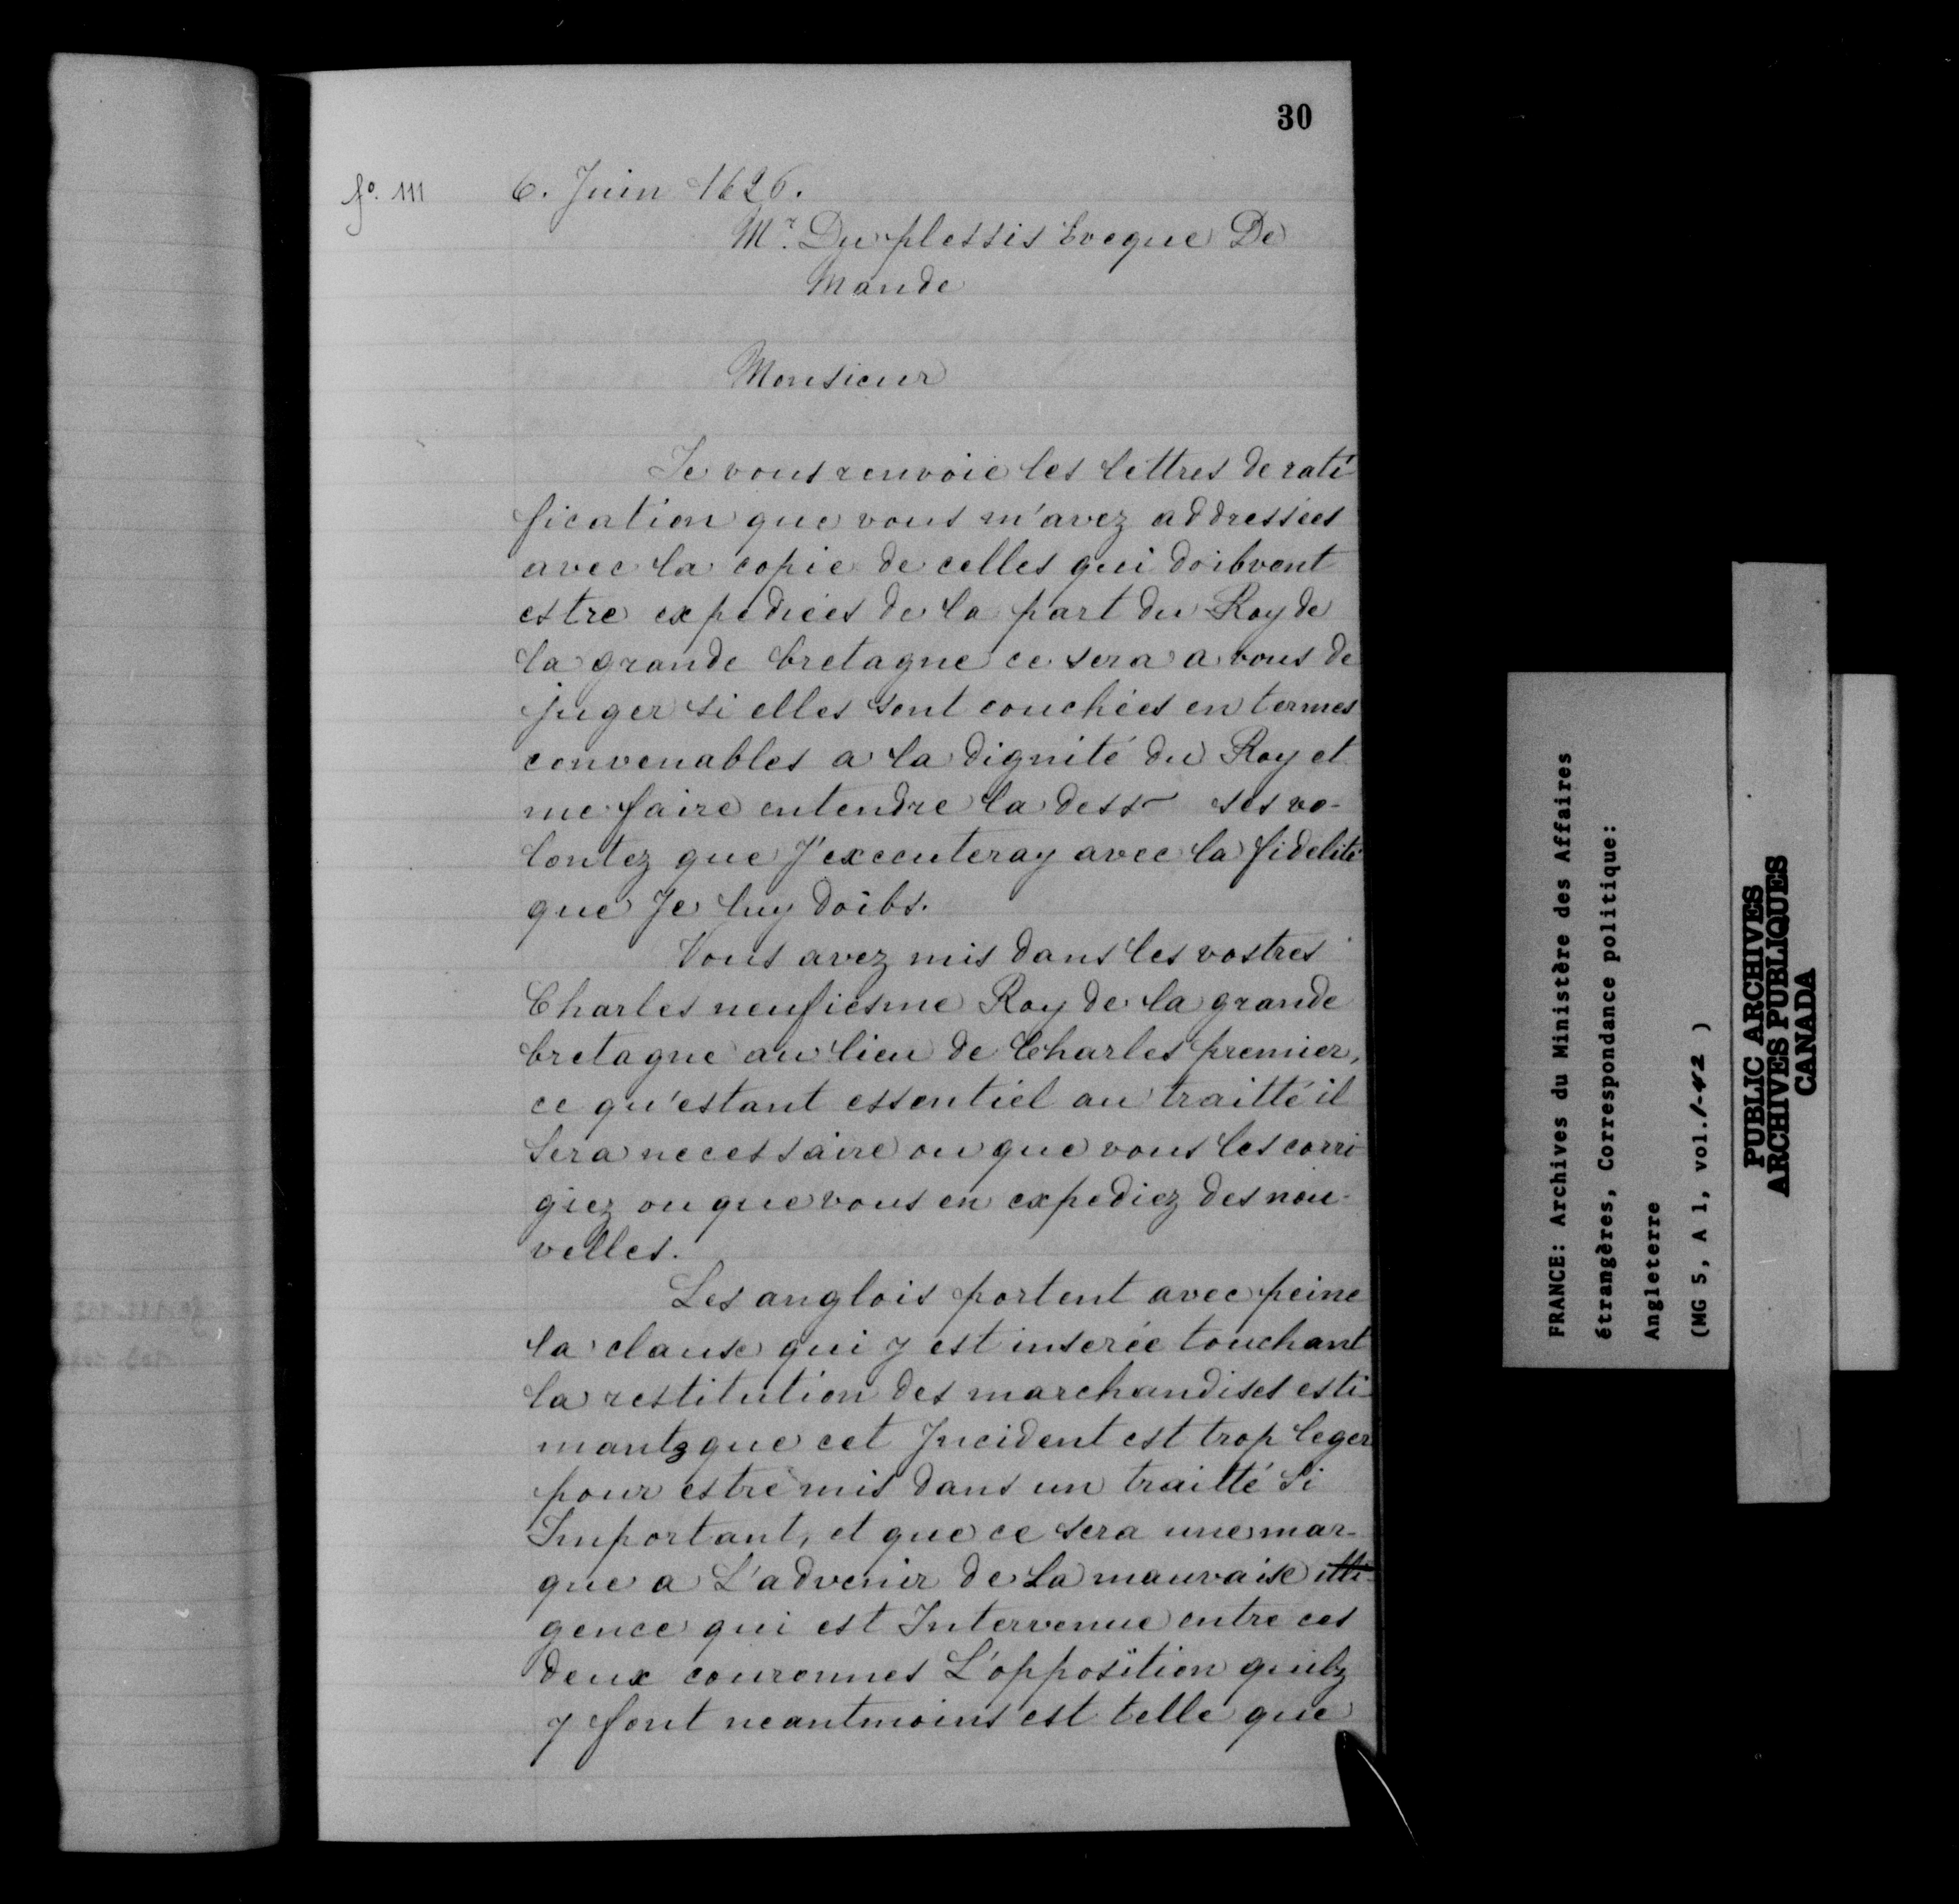 30
fo. 111
6. Juin 1626.
Mr. Du plessis Eveque De
Mande
Monsieur
Je vous renvoie les lettres de rati
fication que vous m'avez addressées
avec la copie de celles qui doibvent
estre expediées de la part du Roy de
la grande bretagne ce sera a vous de
juger si elles sont couchées en termes
convenables a la dignité du Roy et
me faire entendre la dess ses vo-
lontez que J'executeray avec la fidelité
que Je luy doibs.
Vous avez mis dans les vostres
Charles neufiesme Roy de la grande
bretagne au lieu de Charles premier,
ce qu'estant essentiel au traitté il
sera necessaire ou que vous les corri-
giez ou que vous en expediez des nou-
velles.
Les anglois portent avec peine
la clause qui y est inserée touchant
la restitution des marchandises esti-
mantz que cet Jncident est trop leger
pour estre mis dans un traitté si
Important, et que ce sera une mar-
que a L'advenir de La mauvaise
gence qui est Intervenue entre ces
deux couronnes L'opposition quilz
y font neantmoins est telle que
FRANCE: Archives du Ministère des Affaires
étrangères, Correspondance politique:
Angleterre
(MG 5, A 1, vol. 1-42 )
PUBLIC ARCHIVES
ARCHIVES PUBLIQUES
CANADA